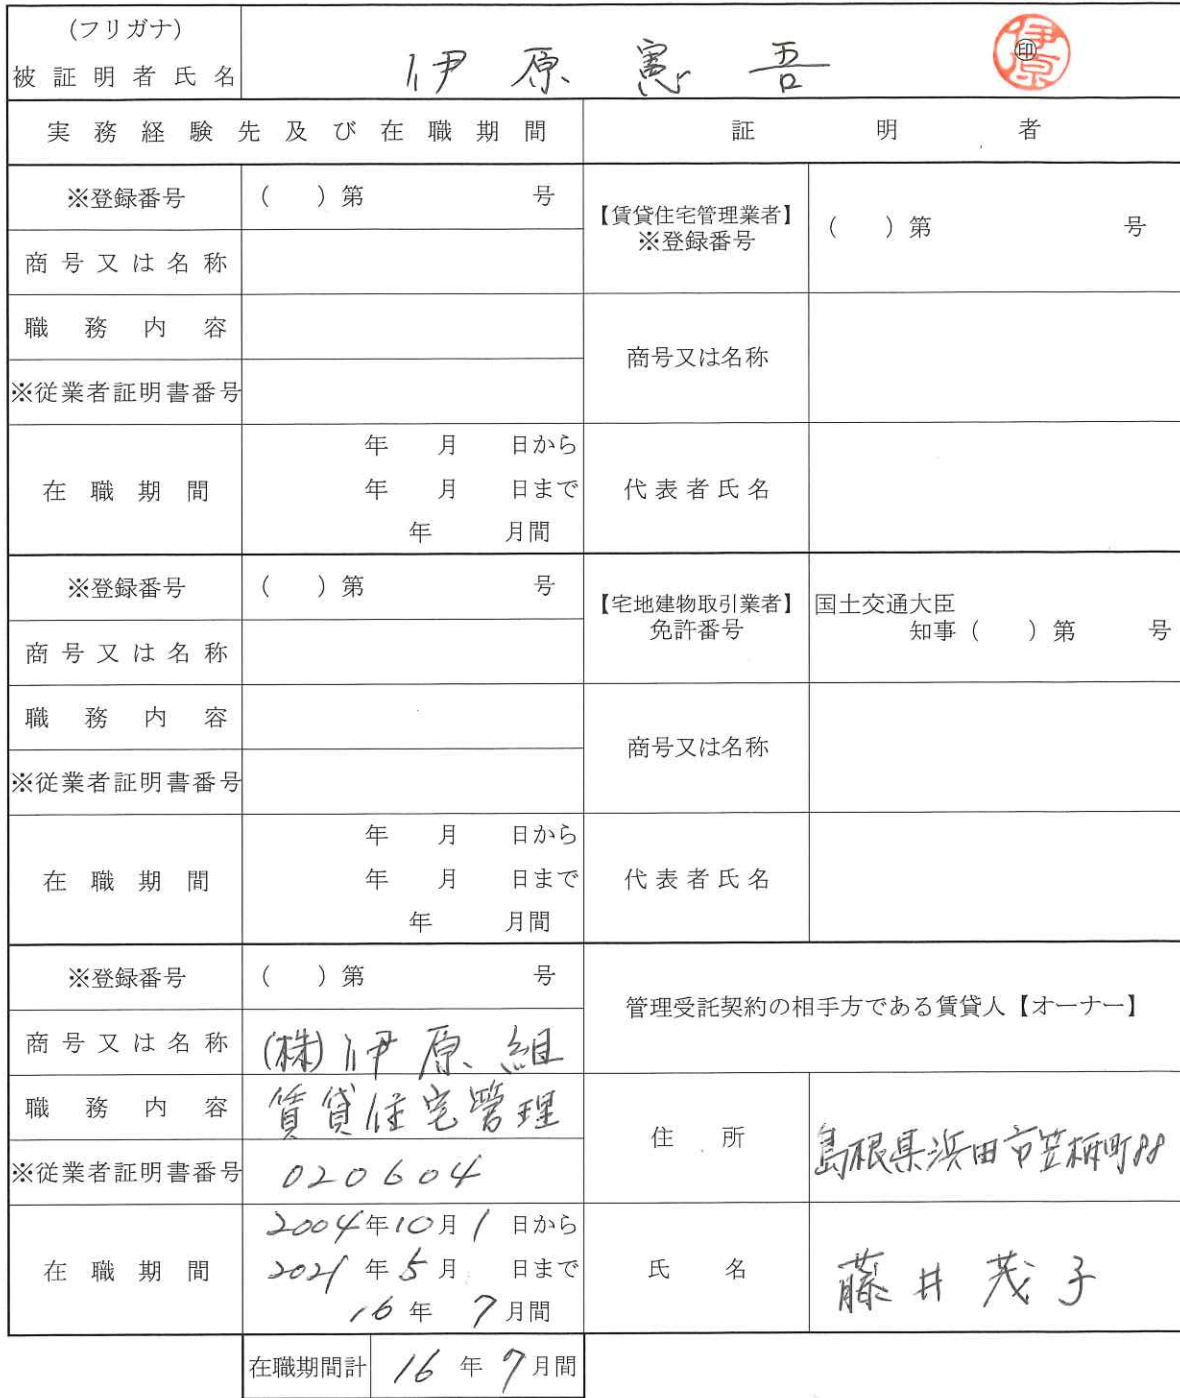 (フリガナ)
被証明者氏名 伊原憲吾 ㊞ 伊原
実務経験先及び在職期間 証明者
※登録番号 ( )第 号
【賃貸住宅管理業者】
※登録番号 ( )第 号
商号又は名称
職務内容
商号又は名称
※従業者証明書番号
在職期間 年 月 日から
年 月 日まで
年 月間
代表者氏名
※登録番号 ( )第 号
【宅地建物取引業者】
免許番号
国土交通大臣
知事( )第 号
商号又は名称
職務内容
商号又は名称
※従業者証明書番号
在職期間 年 月 日から
年 月 日まで
年 月間
代表者氏名
※登録番号 ( )第 号
管理受託契約の相手方である賃貸人【オーナー】
商号又は名称 (株)伊原組
職務内容 賃貸住宅管理
住所 島根県浜田市笠柄町88
※従業者証明書番号 020604
在職期間 2004年10月1日から
2021年5月 日まで
16年7月間
氏名 藤井茂子
在職期間計 16年7月間